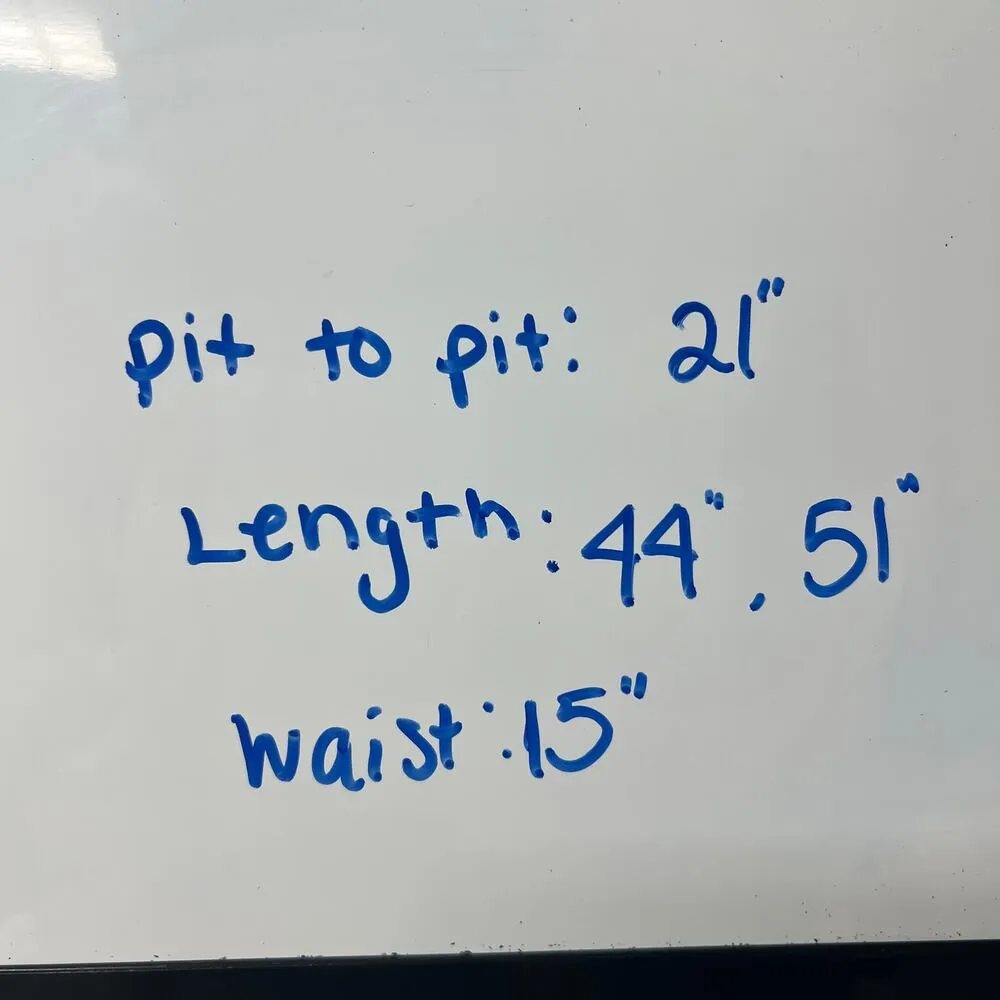 pit to pit: 21"
Length: 44", 51"
waist: 15"